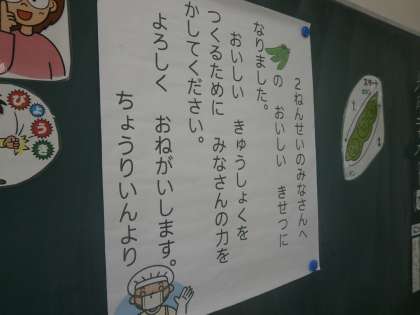 2ねんせいのみなさんへ
の おいしい きせつに
なりました。
おいしい きゅうしょくを
つくるために みなさんの力を
かしてください。
よろしく おねがいします。
ちょうりいんより
スタート